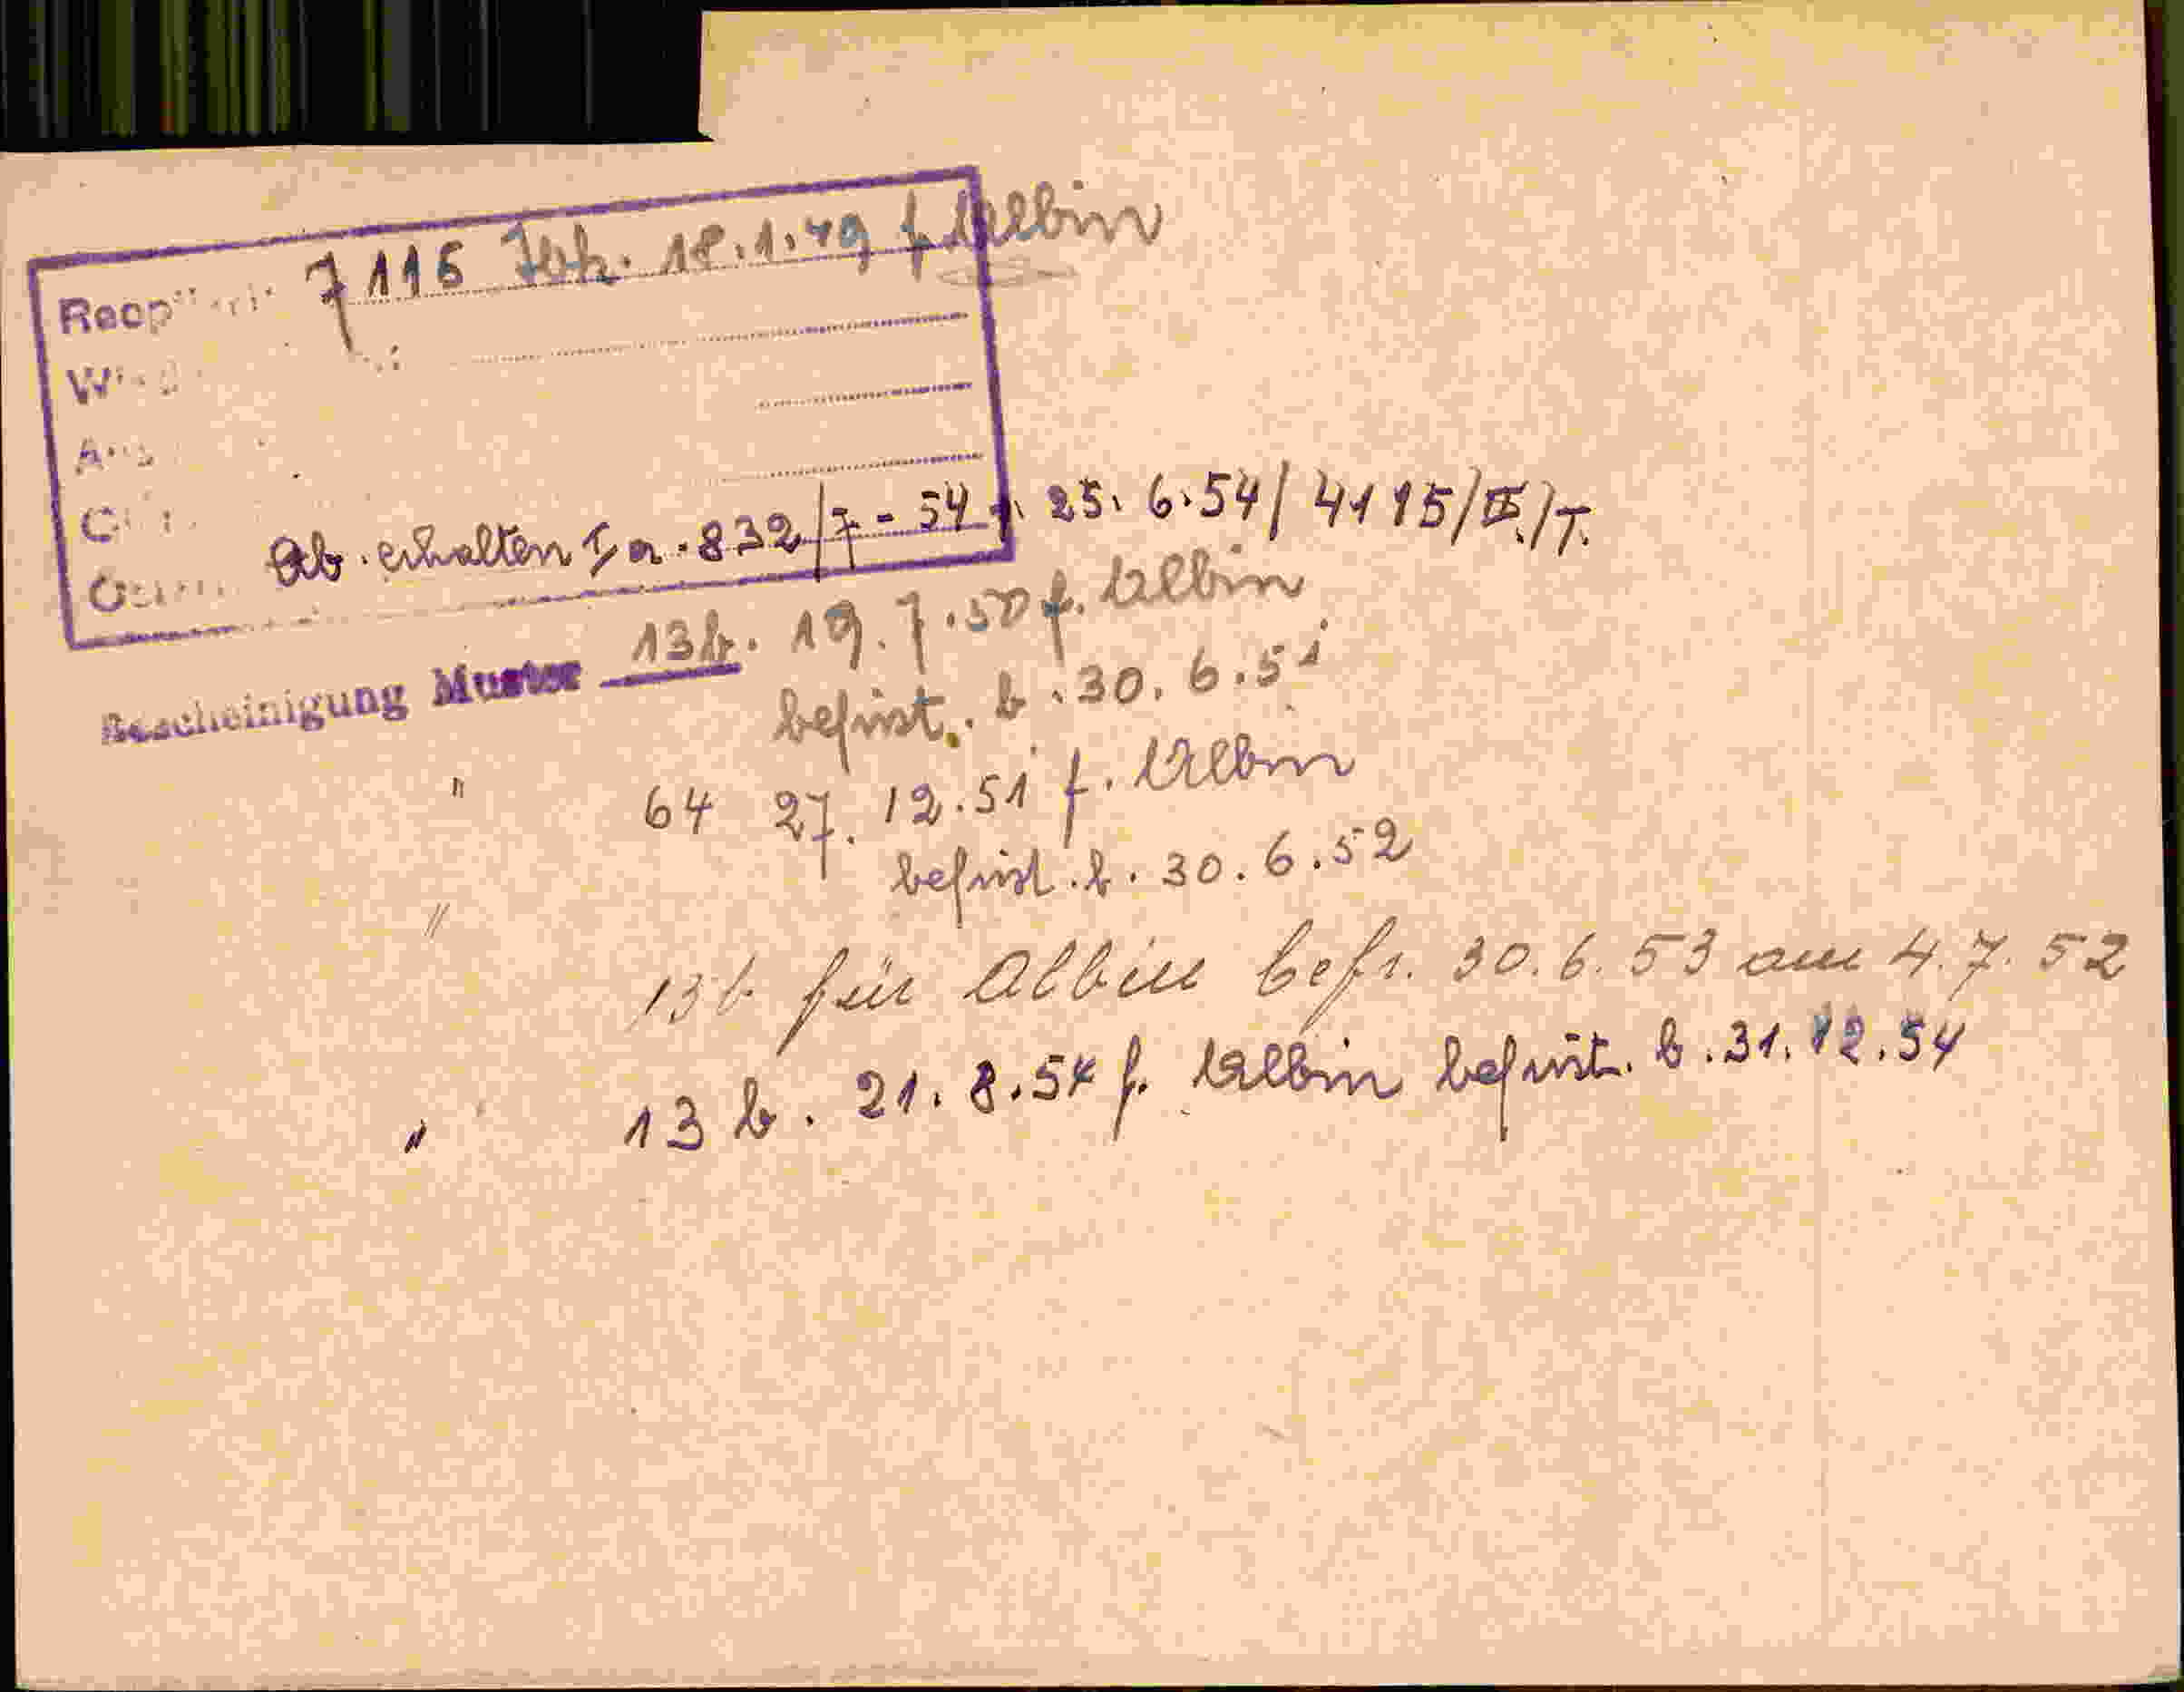 7116 18.1.49 f. Albin
Ab. erhalten I a. 832/7-54 v. 25.6.54/4115/II./T.
Bescheinigung Muster 13b. 19.7.50 f. Albin
befrist. b. 30.6.51
" 64 27.12.51 f. Albin
befrist. b. 30.6.52
" 13b für Albin befr. 30.6.53 am 4.7.52
" 13b. 21.8.54 f. Albin befrist. b. 31.12.54